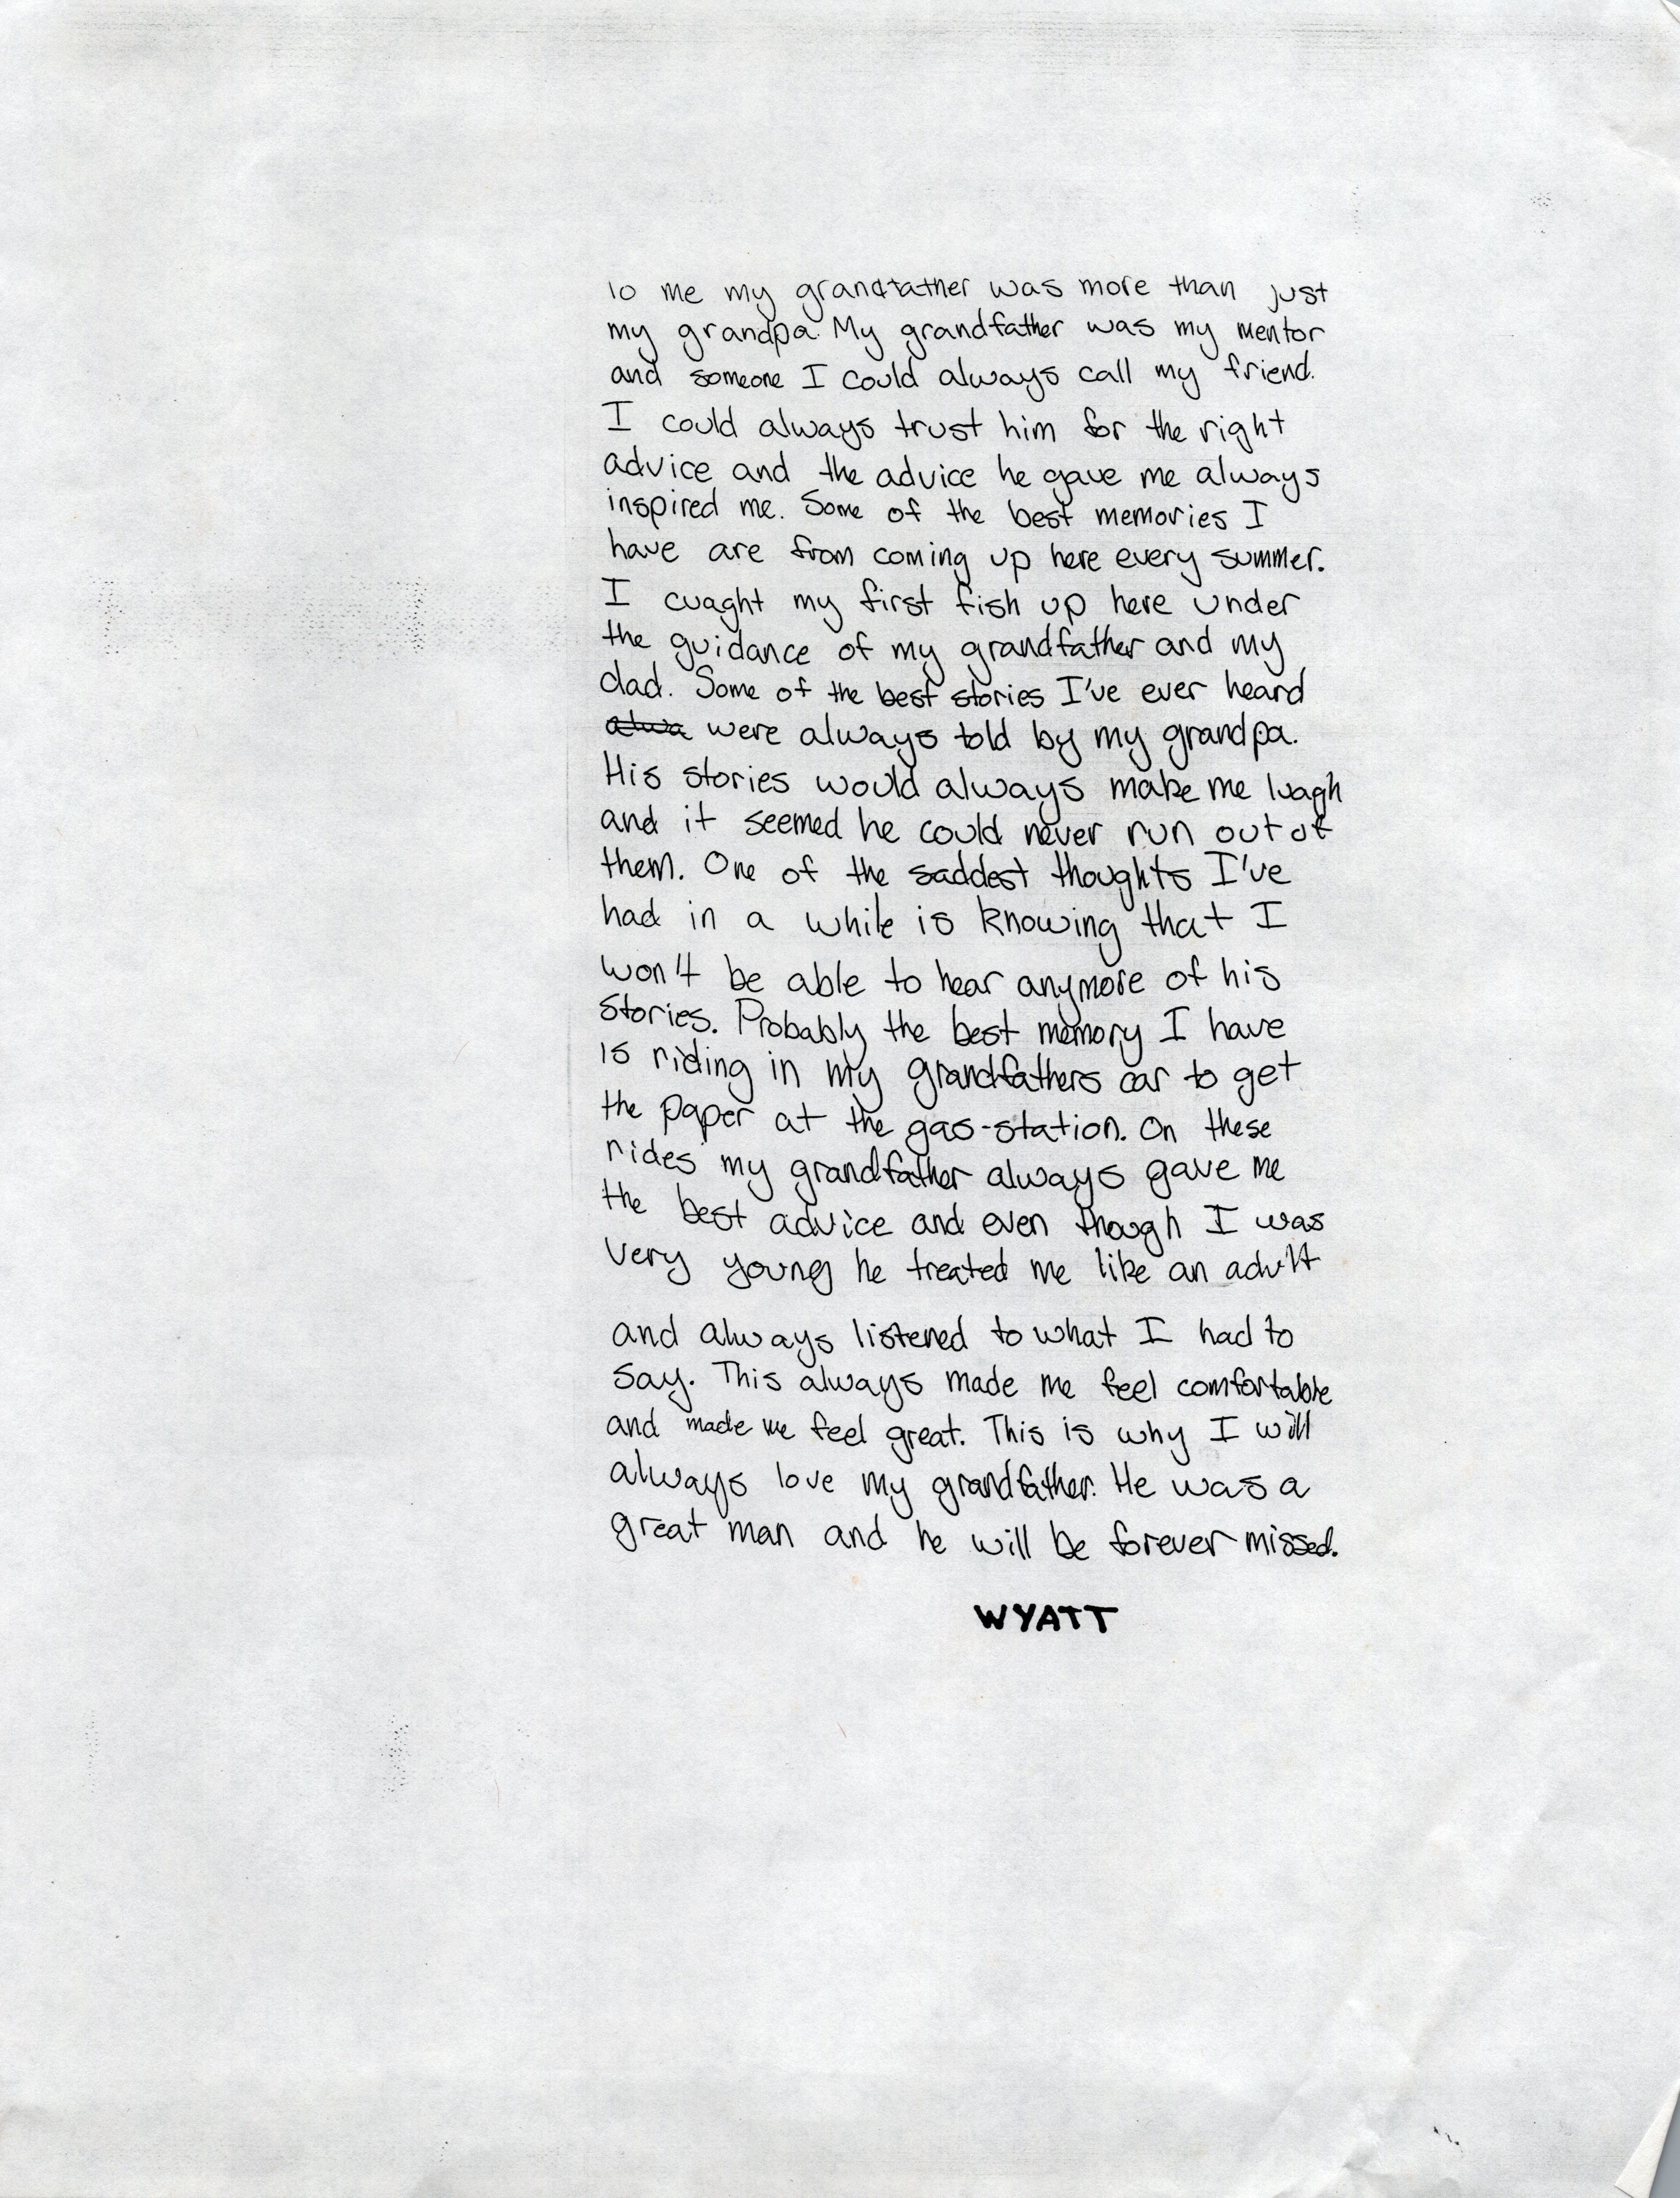 To me my grandfather was more than just
my grandpa. My grandfather was my mentor
and someone I could always call my friend.
I could always trust him for the right
advice and the advice he gave me always
inspired me. Some of the best memories I
have are from coming up here every summer.
I cuaght my first fish up here under
the guidance of my grandfather and my
dad. Some of the best stories I've ever heard
alwa were always told by my grandpa.
His stories would always make me luagh
and it seemed he could never run out of
them. One of the saddest thoughts I've
had in a while is knowing that I
won't be able to hear anymore of his
stories. Probably the best memory I have
is riding in my grandfathers car to get
the paper at the gas-station. On these
rides my grandfather always gave me
the best advice and even though I was
very young he treated me like an adult
and always listened to what I had to
say. This always made me feel comfortable
and made me feel great. This is why I will
always love my grandfather. He was a
great man and he will be forever missed.
WYATT